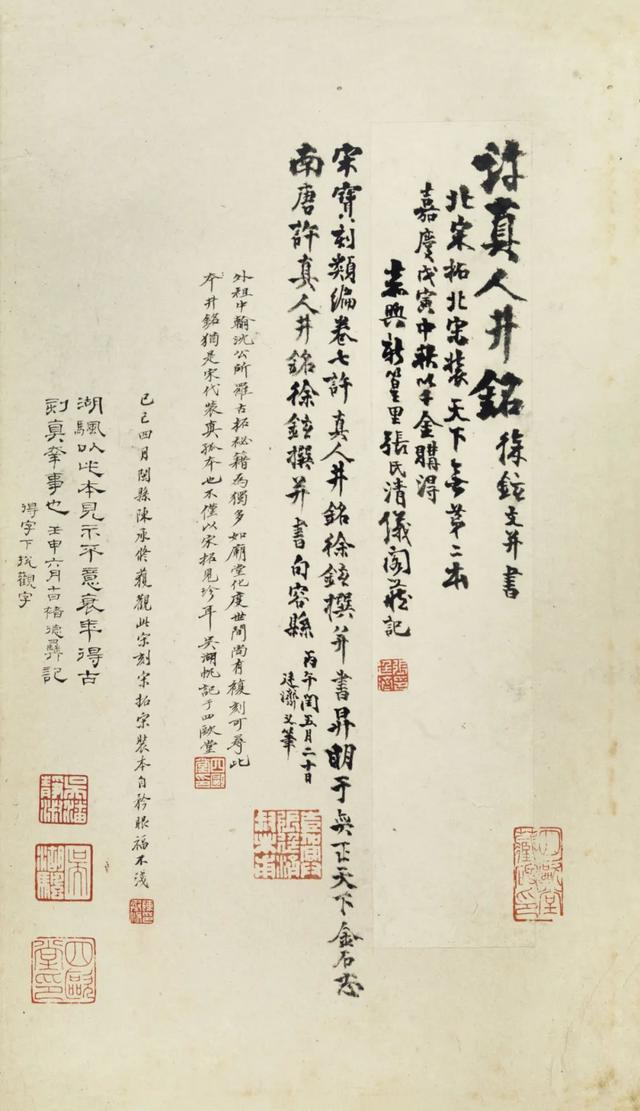 許真人井銘 徐鉉文并書
北宋拓北宋裝天下無第二本
嘉慶戊寅中秋以千金購得
嘉興新篁里張氏清儀閣藏記
宋寶刻類編卷七許真人井銘徐鉉撰并書昇明于無正天下金石志
南唐許真人井銘徐鉉撰并書句容縣 丙午閏五月二十日
廷濟又筆
外祖中翰沈公所羅古拓祕籍為獨多如廟堂化度世間尚有複刻可尋此
本井銘猶是宋代裝真孤本也不僅以宋拓見珍耳 吳湖帆記于四歐堂
己巳四月閩縣陳承修獲觀此宋刻宋拓宋裝本自矜眼福不淺
湖颿以此本見示不意衰年得古
刻真奎事也 壬申六月 褚德彝記
得字下挩觀字
四歐堂印
吳湖颿
四歐堂印